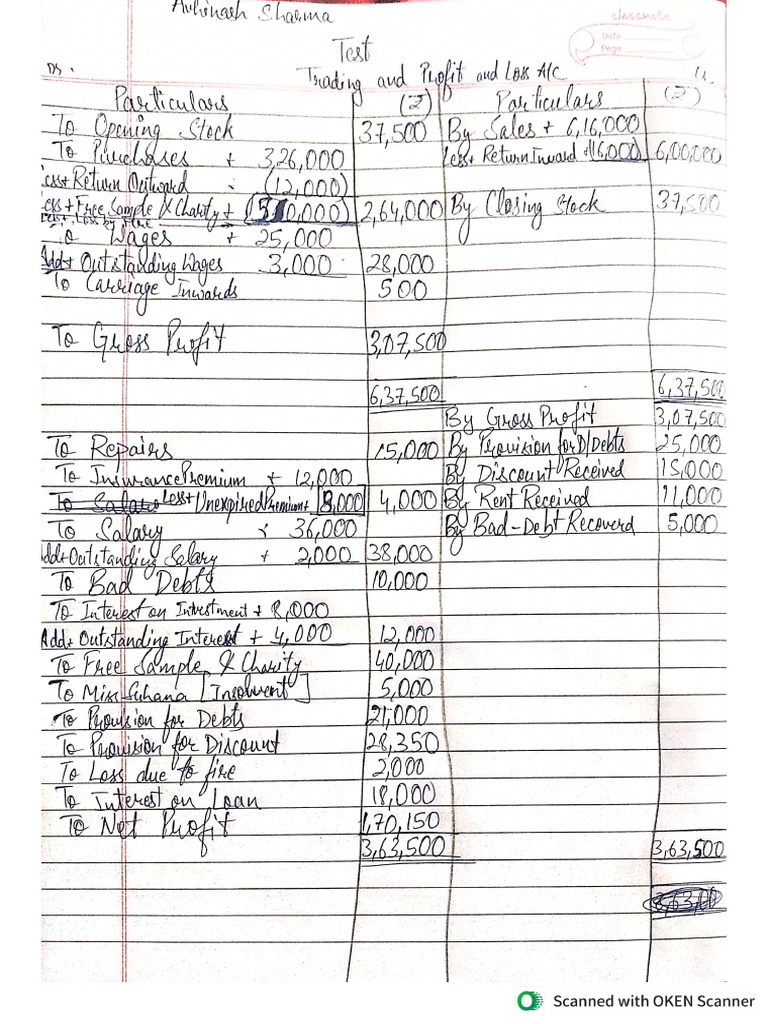 Avhinash Sharma
classmate
Date
Page
Test
Trading and Profit and Loss A/C
Dr. Cr.
Particulars (₹) Particulars (₹)
To Opening Stock 37,500 By Sales + 6,16,000
To Purchases + 3,26,000 Less + Return Inward + (16,000) 6,00,000
Less + Return Outward (12,000)
Less + Free Sample & Charity + (50,000) 2,64,000 By Closing Stock 37,500
To Wages + 25,000
Add + Outstanding Wages 3,000 28,000
To Carriage Inwards 500
To Gross Profit 3,07,500
6,37,500 6,37,500
By Gross Profit 3,07,500
To Repairs 15,000 By Provision for D/Debts 25,000
To Insurance Premium + 12,000 By Discount Received 15,000
Less + Unexpired Premium + 8,000 4,000 By Rent Received 11,000
To Salary : 36,000 By Bad-Debt Recoverd 5,000
Add + Outstanding Salary + 2,000 38,000
To Bad Debts 10,000
To Interest on Investment + 8,000
Add + Outstanding Interest + 4,000 12,000
To Free Sample & Charity 40,000
To Miss Suhana [Insolvent] 5,000
To Provision for Debts 21,000
To Provision for Discount 28,350
To Loss due to fire 2,000
To Interest on Loan 18,000
To Net Profit 1,70,150
3,63,500 3,63,500
Scanned with OKEN Scanner